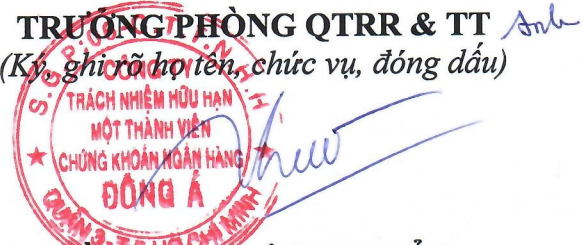 TRƯỞNG PHÒNG QTRR & TT
(Ký, ghi rõ họ tên, chức vụ, đóng dấu)
CÔNG TY
TRÁCH NHIỆM HỮU HẠN
MỘT THÀNH VIÊN
CHỨNG KHOÁN NGÂN HÀNG
ĐÔNG Á
QUẬN 3 - T.P HỒ CHÍ MINH